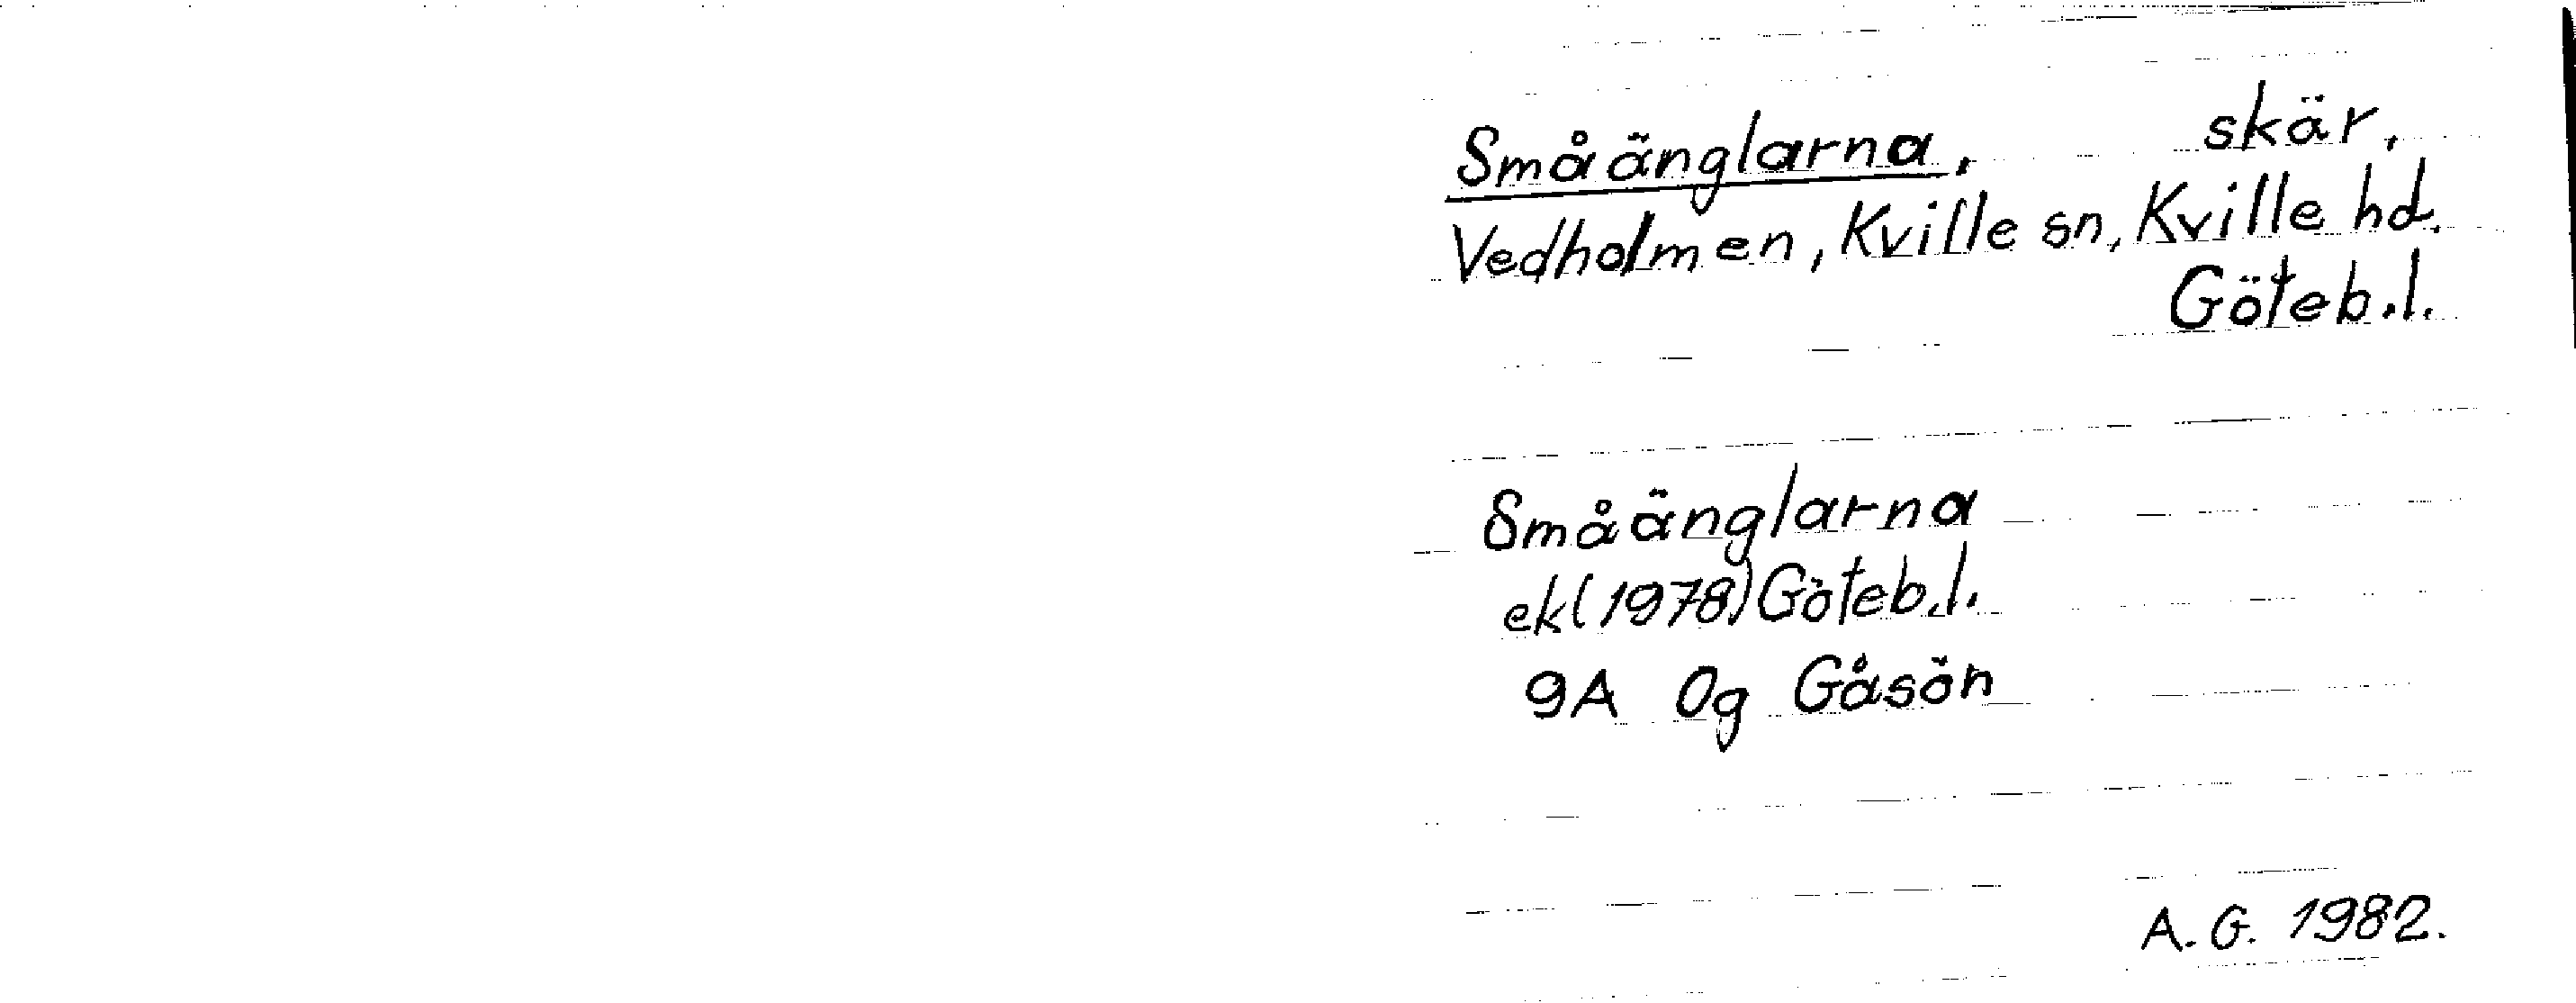 Småänglarna, skär,
Vedholmen, Kville sn, Kville hd.
Göteb.l.
Småänglarna
ek(1978)Göteb.l.
9A 0g Gåsön
A.G. 1982.